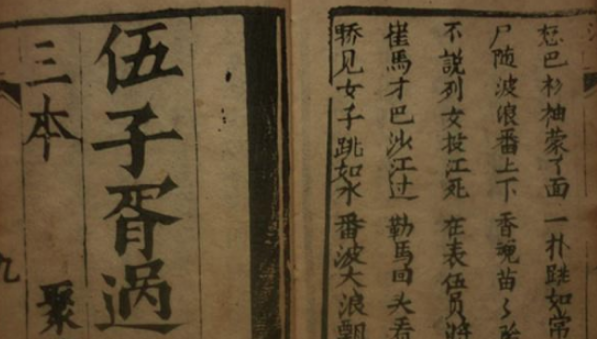 巴衫袖蒙了面 一扑跳如常
尸随波浪番上下 香魂苗〻
不說列女投江死 在表伍員將
崔馬才巴沙江过 勒馬回头看
骄见女子跳如水 番波大浪飄
伍子胥過
三本 聚
九